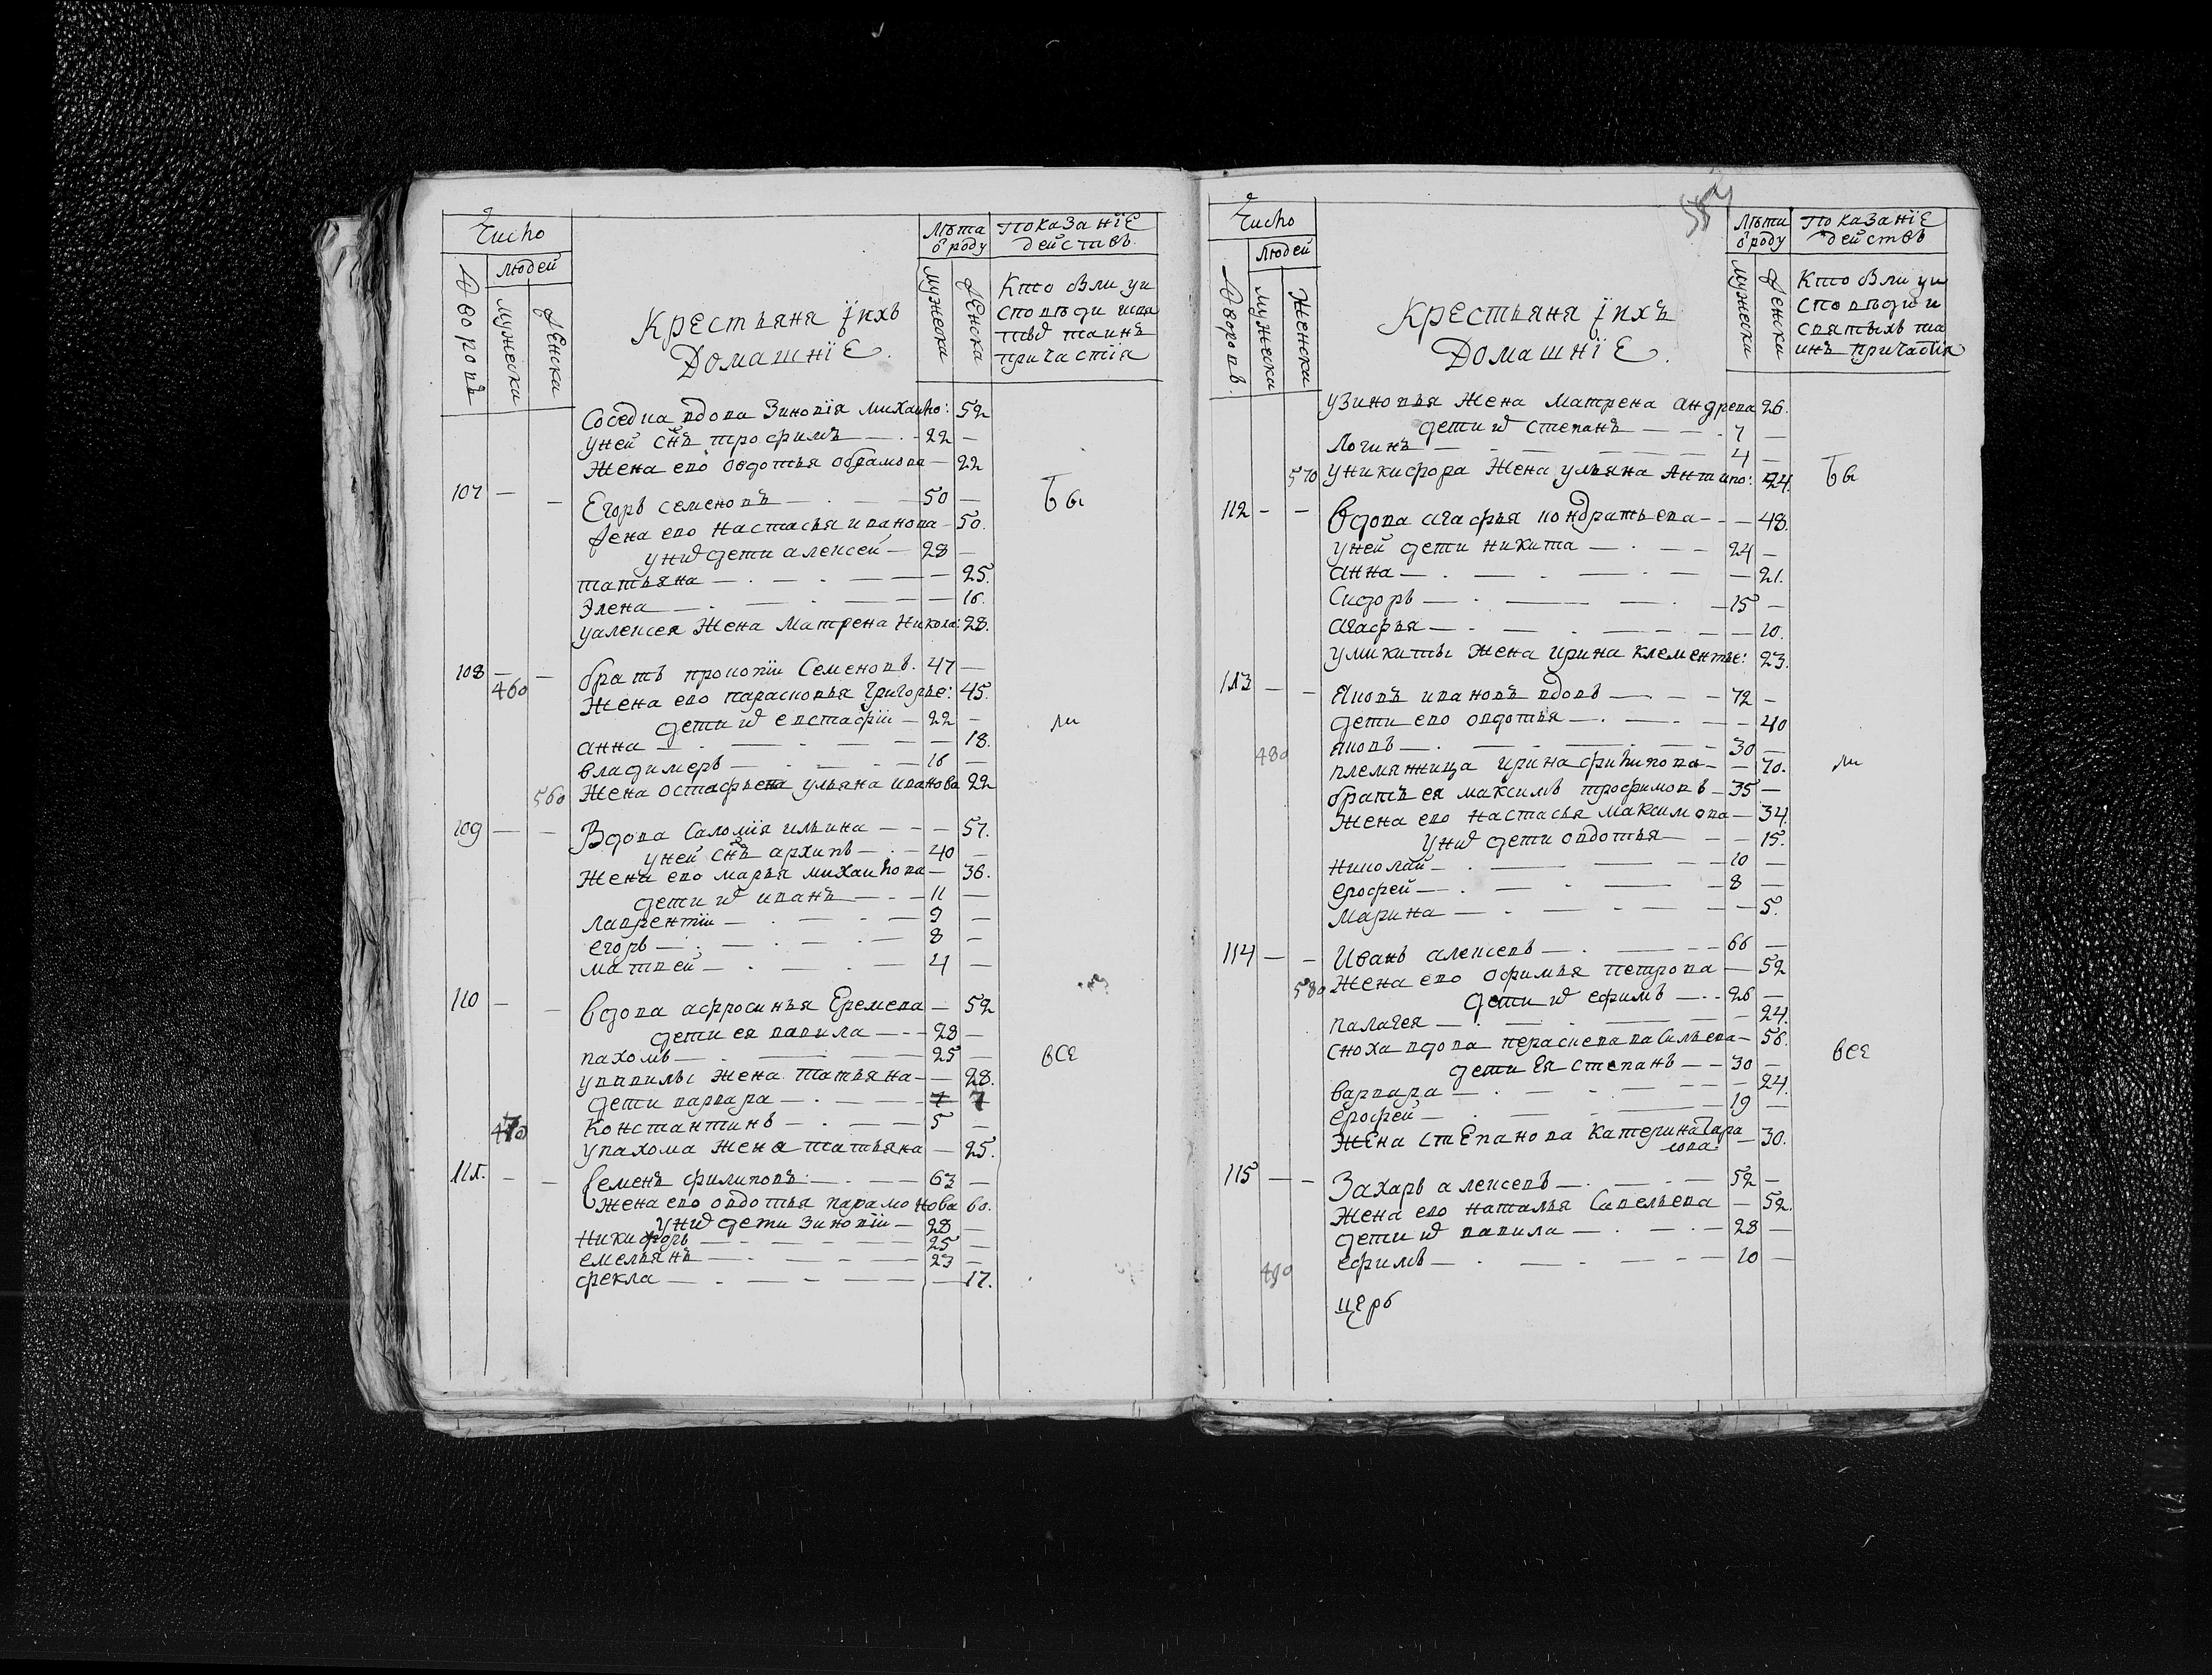 Число
Дворовъ
людей
мужески
Женски
Крестьяня їихъ
Домашнїе.
Лѣта
ѿ роду
мужески
Женски
Показанїе
действъ.
Кто были уи
споведи исвя
тыхъ таинъ
причастїя
Соседка вдова Зиновїя Михаило: 52
уней снъ трофимъ — 22 —
Жена ево овдотья обрамова — 22
107 — — Егоръ семеновъ — 50 —
Жена ево настасья иванова — 50.
уних дети алексей — 28 —
татьяна — — 25.
Элена — — 16.
уалексея Жена Матрена Никола: 28.
Бы
108 — — братъ прокопїи Семеновъ. 47 —
460 Жена ево парасковья Григорье: 45.
дети их евстафїи — 22 —
анна — — 18.
владимеръ — 16 —
560 Жена остафьева ульяна иванова 22
ли
109 — — Вдова Саломїя ильина — — 57.
уней снъ архипъ — 40 —
Жена ево марья михаилова — 36.
дети их иванъ — 11 —
лаврентїи — 9 —
егоръ — 8 —
матвей — 4 —
110 — — вдова афросинья Еремева — 52
дети ея вавила — 28 —
пахомъ — 25 —
увавилы Жена татьяна — — 28.
дети варвара — 7
470 Константинъ — 5 —
упахома Жена татьяна — 25.
все
111. — — Семенъ филиповъ — 63 —
Жена ево овдотья парамонова 60.
уних дети зиновїи — 28 —
Никифоръ — 25 —
емельянъ — 23 —
фекла — — 17.
Число
Дворовъ.
людей
мужески
Женски
Крестьяня їихъ
Домашнїе.
Лѣта
ѿ роду
мужески
Женски
Показанїе
действъ
Кто были уи
споведи и
святыхъ та
инъ причастїя
узиновья Жена Матрена Андрева 26.
дети их степанъ — 7 —
Логинъ — 4 —
570 уникифора Жена ульяна Антипо: 24.
Бы
112 — — вдова агафья кондратьева — — 48.
уней дети никита — 24 —
анна — — 21.
Сидоръ — 15 —
агафья — — 10.
уникиты Жена ирина клементье: 23.
113 — — Яковъ ивановъ вдовъ — 72 —
дети ево овдотья — — 40
480 яковъ — 30 —
племянница ирина филипова — — 70.
ли
братъ ея максимъ трофимовъ — 35 —
Жена ево настасья максимова — 34.
уних дети овдотья — — 15.
николай — 10 —
ерофей — 8 —
марина — — 5.
114 — — Иванъ алексевъ — 66 —
580 Жена ево офимья петрова — 52
дети их ефимъ — 26 —
палагея — — 24.
сноха вдова параскева васильева — 56.
все
дети ея степанъ — 30 —
варвара — — 24.
ерофей — 19 —
Жена степанова катерина гара
30.
115 — — Захаръ алексевъ — 52 —
Жена ево наталья савельева — 52.
дети их вавила — 28 —
490 ефимъ — 10 —
церб